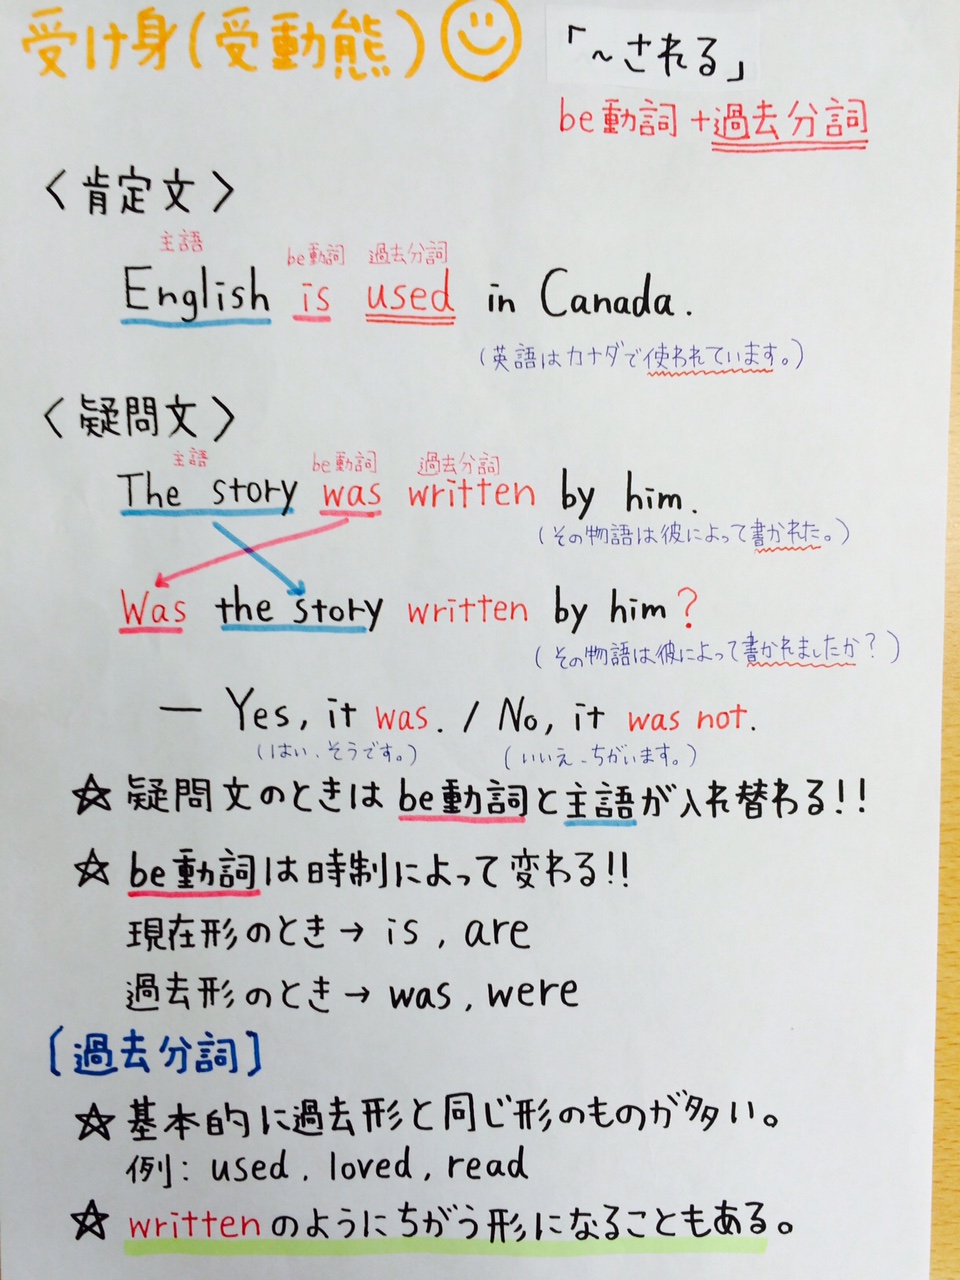 受け身(受動態)
「~される」
be動詞+過去分詞
〈肯定文〉
主語 be動詞 過去分詞
English is used in Canada.
(英語はカナダで使われています。)
〈疑問文〉
主語 be動詞 過去分詞
The story was written by him.
(その物語は彼によって書かれた。)
Was the story written by him?
(その物語は彼によって書かれましたか?)
— Yes, it was. / No, it was not.
(はい、そうです。) (いいえ、ちがいます。)
☆疑問文のときはbe動詞と主語が入れ替わる!!
☆be動詞は時制によって変わる!!
現在形のとき→is, are
過去形のとき→was, were
[過去分詞]
☆基本的に過去形と同じ形のものが多い。
例: used, loved, read
☆writtenのようにちがう形になることもある。